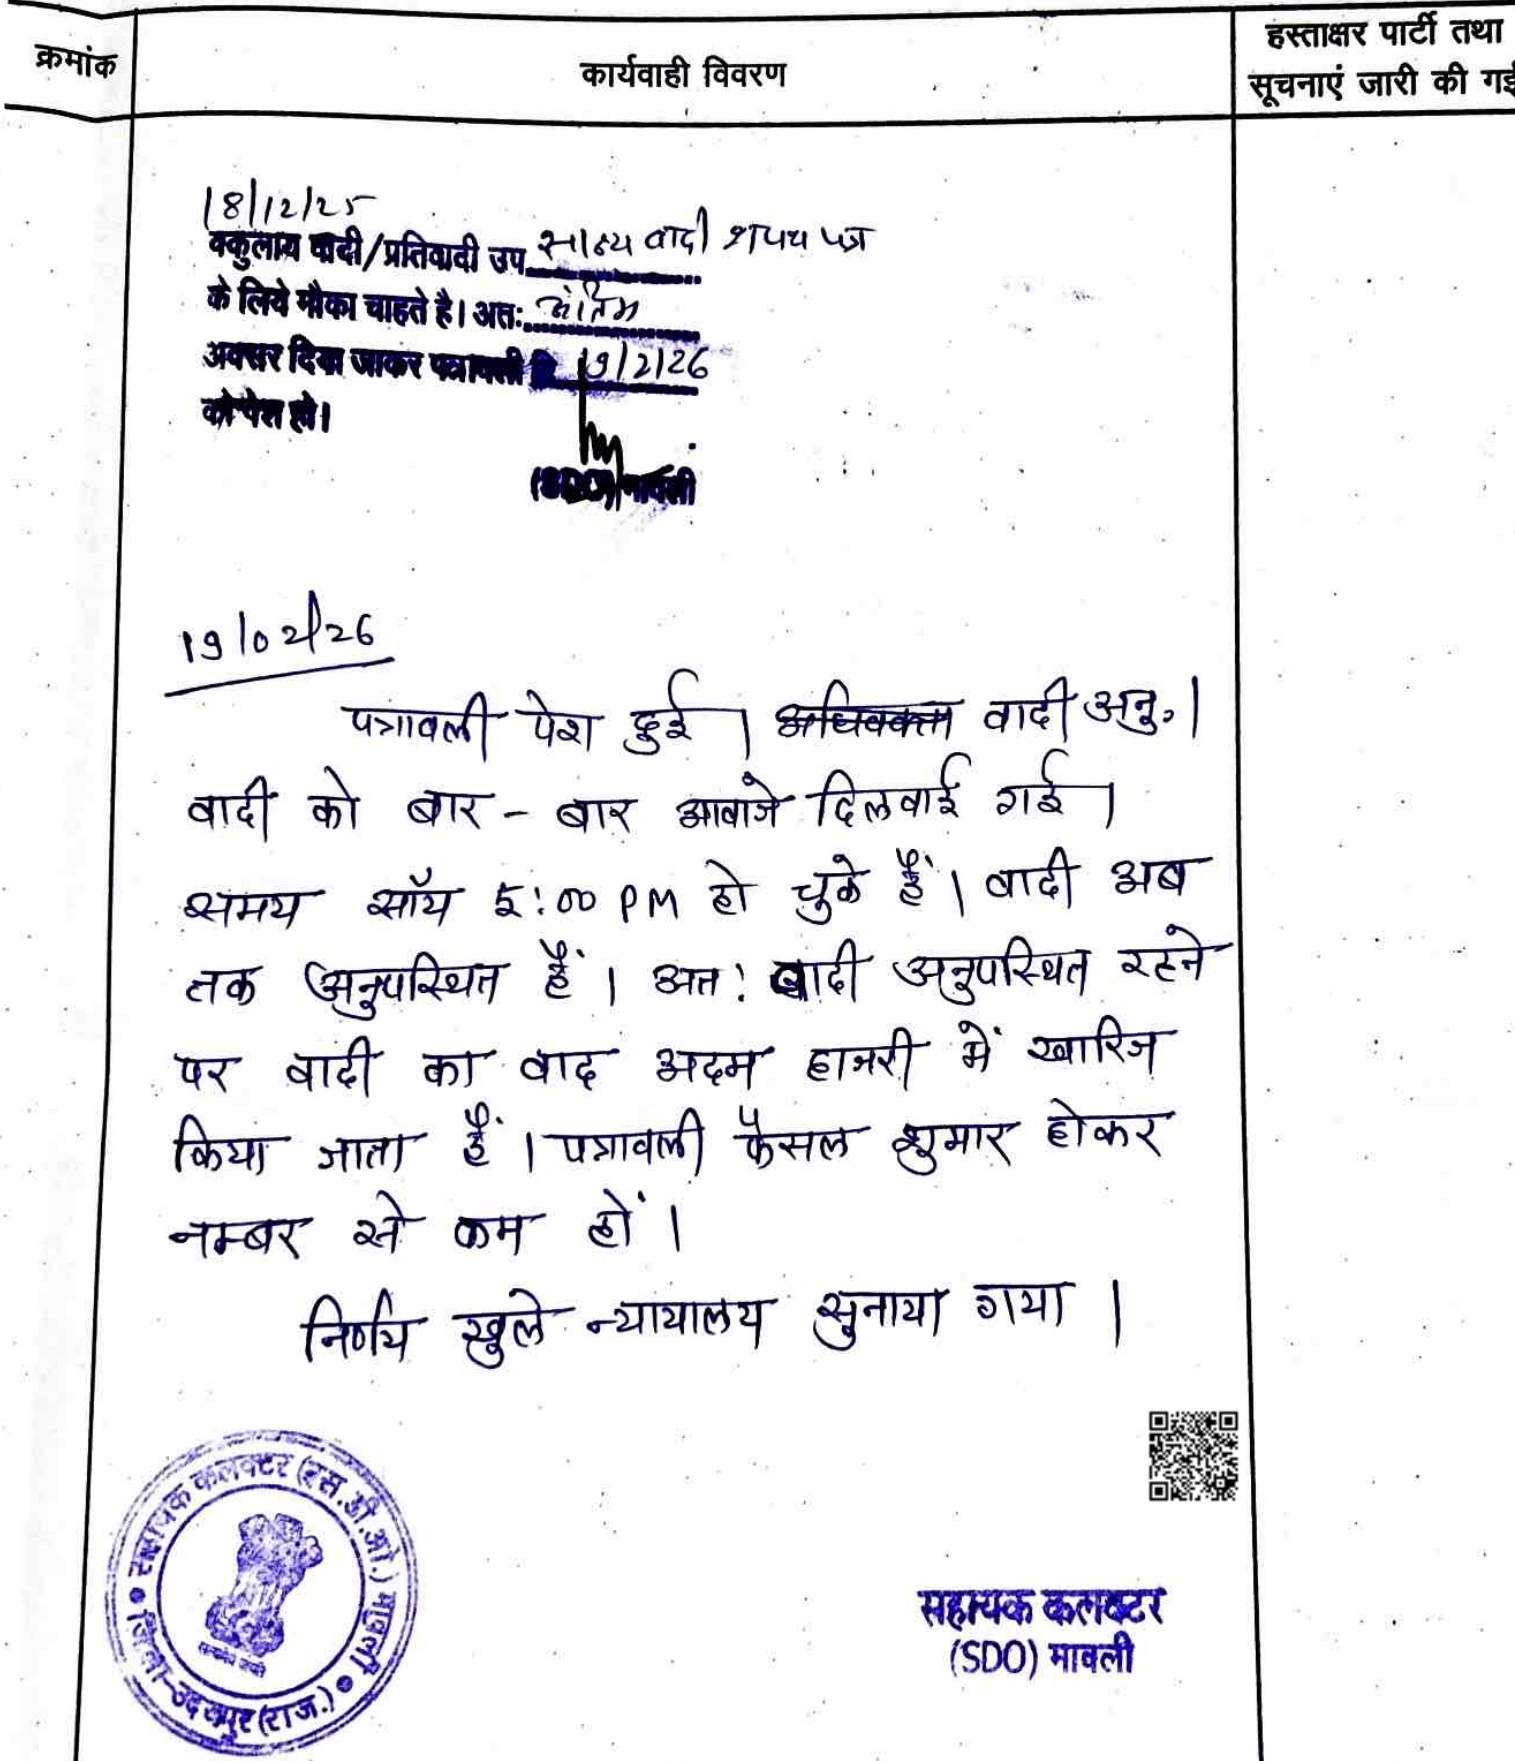 क्रमांक
कार्यवाही विवरण
हस्ताक्षर पार्टी तथा
सूचनाएं जारी की गई
18/12/25
वकुलाय वादी/प्रतिवादी उप साक्ष्य वादी शपथ पत्र
के लिये मौका चाहते है। अतः अंतिम
अवसर दिया जाकर पत्रावली दि 19/2/26
को पेश हो।
(SDO) मावली
19/02/26
पत्रावली पेश हुई। अधिवक्ता वादी अनु.।
वादी को बार-बार आवाजे दिलवाई गई।
समय सॉय 5:00 PM हो चुके हैं। वादी अब
तक अनुपस्थित हैं। अत: वादी अनुपस्थित रहने
पर वादी का वाद अदम हाजरी में खारिज
किया जाता हैं। पत्रावली फैसल शुमार होकर
नम्बर से कम हों।
निर्णय खुले न्यायालय सुनाया गया।
सहायक कलक्टर (एस.डी.ओ.) मावली
जिला-उदयपुर (राज.)
सहायक कलक्टर
(SDO) मावली